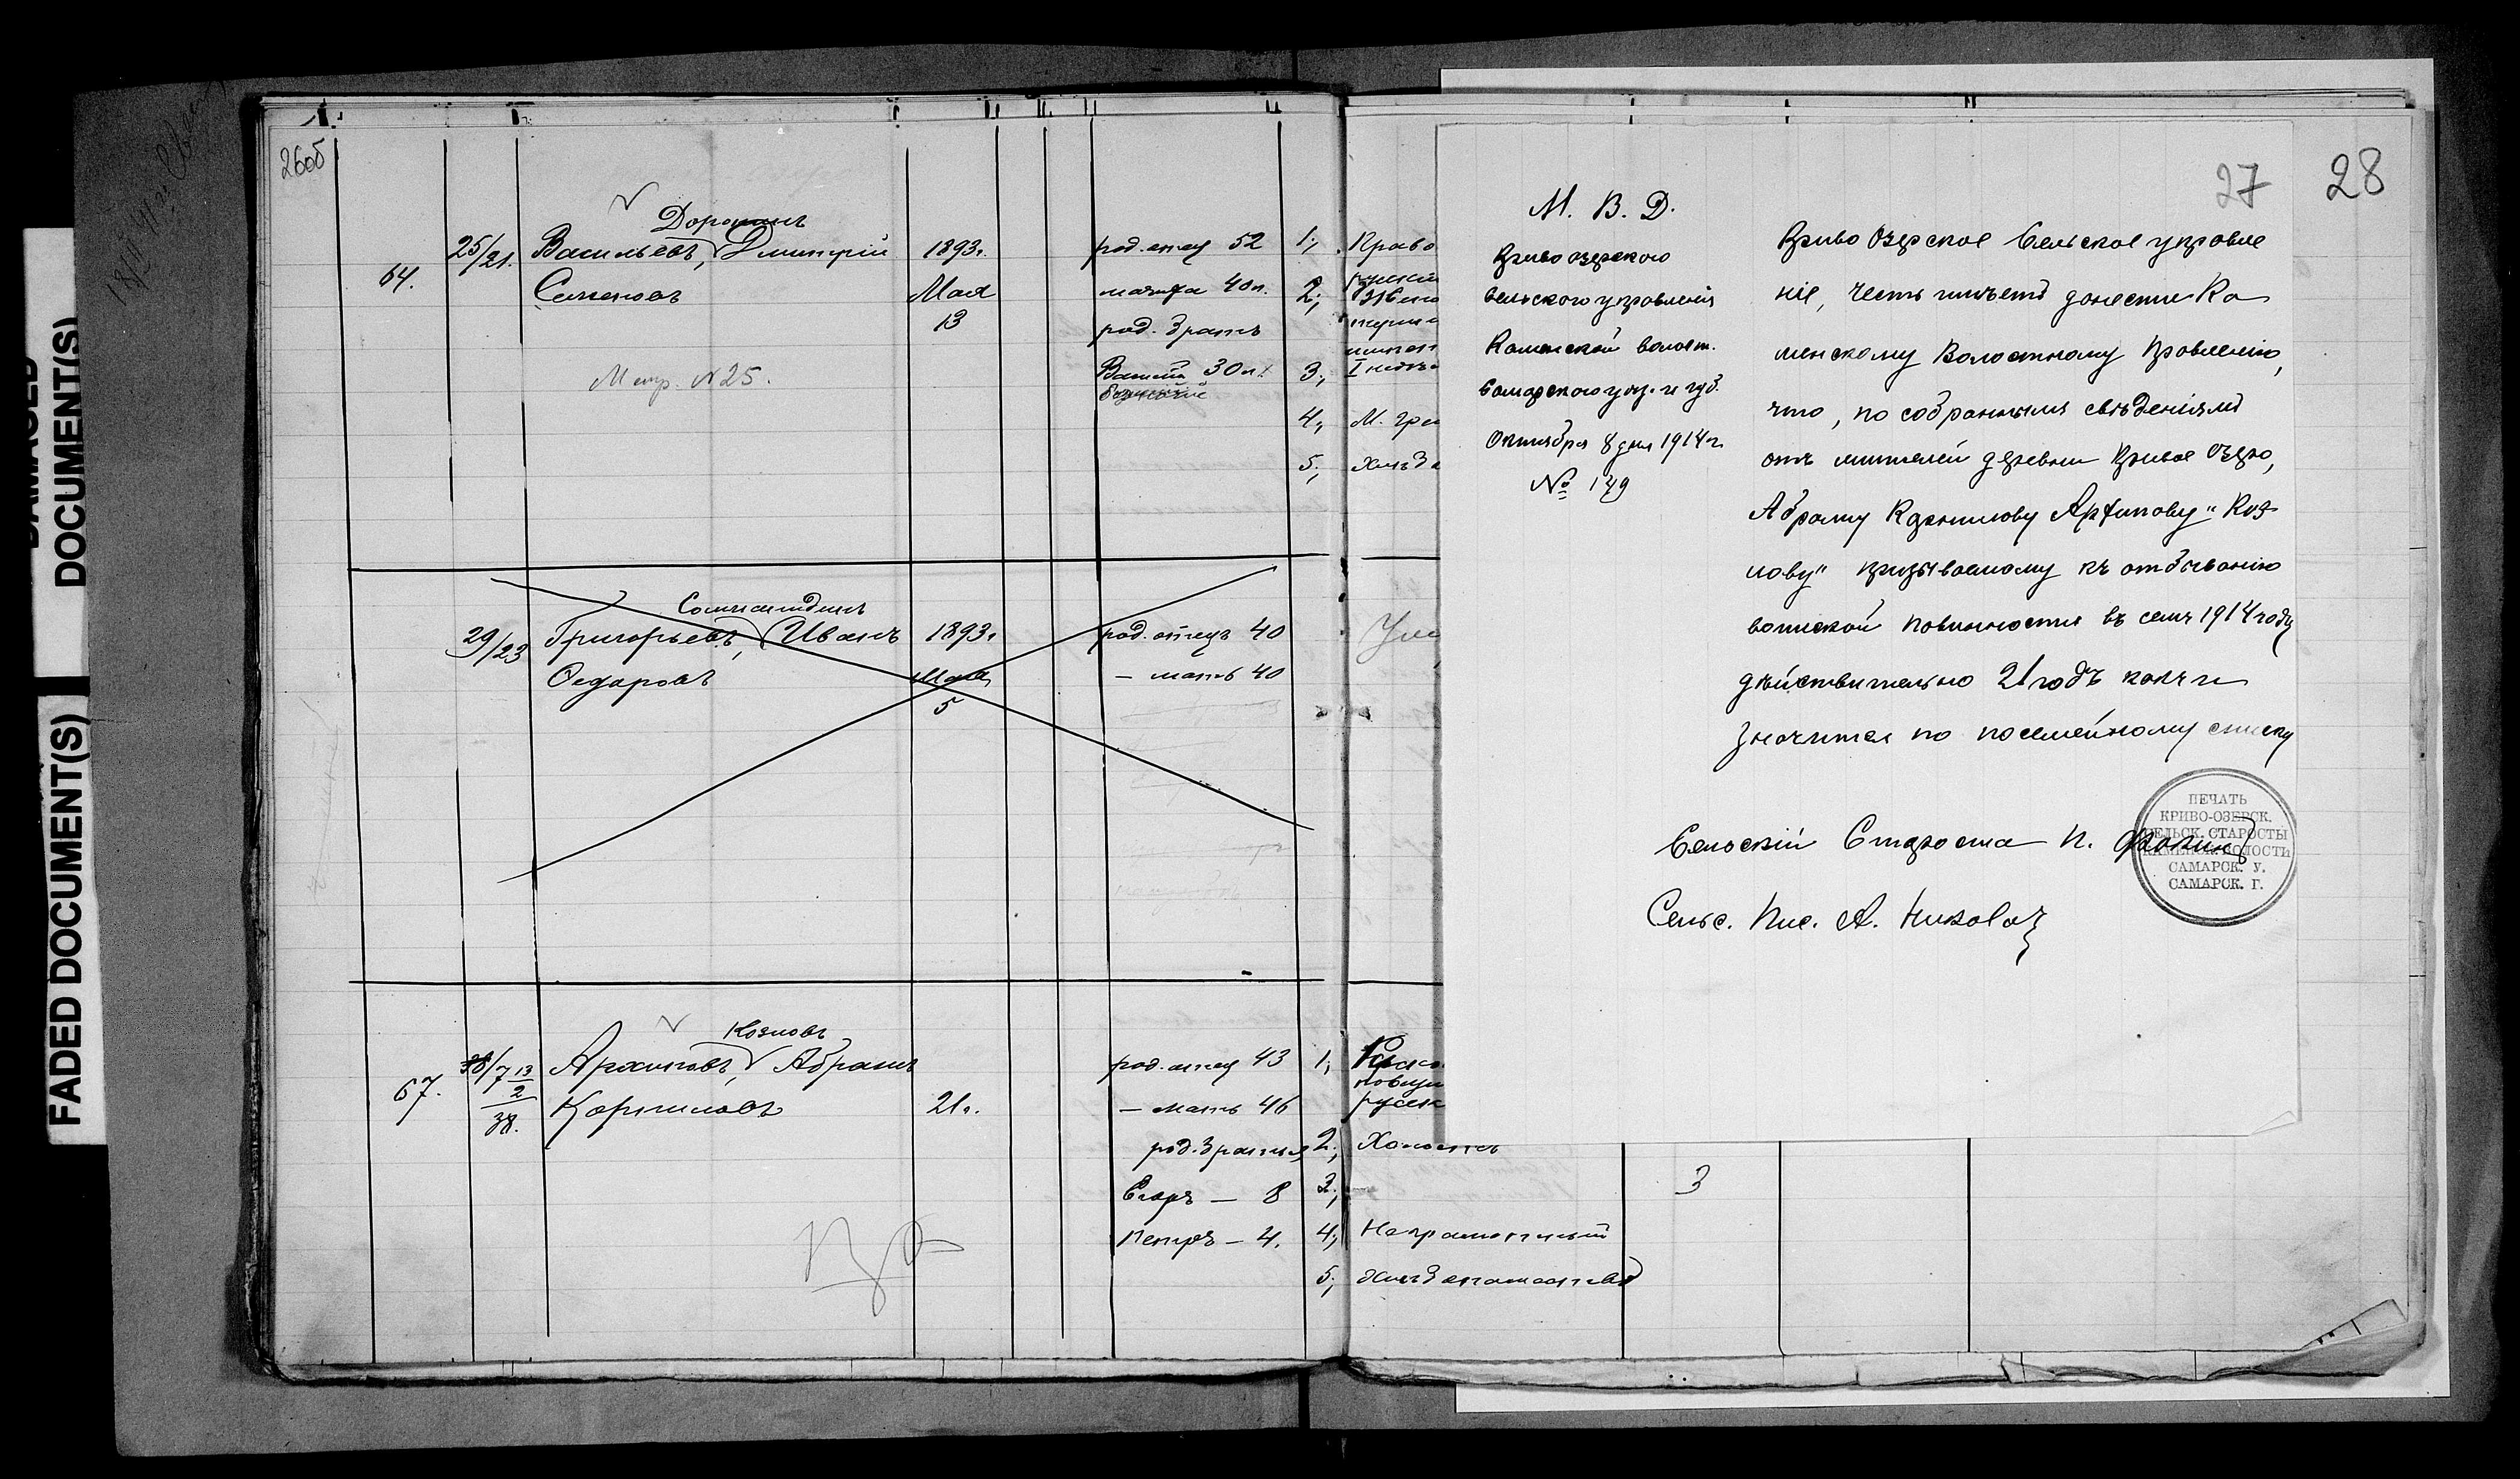 DAMAGED
DOCUMENT(S)
FADED DOCUMENT(S)
26об
64.
25/21.
Дорошинъ
Васильевъ, Дмитрій
Семеновъ
Метр. №25.
1893г.
Мая
13
род. отец 52
мачиха 40л.
род. братъ
Василій 30л.
1;
2;
3;
4;
5;
29/23
Григорьевъ, Иванъ
Федоровъ
1893г.
Мая
5
род. отецъ 40
— мать 40
67.
38/7 13/2
38.
Козловъ
Архиповъ, Абрамъ
Корниловъ
21г.
род. отец 43
— мать 46
род. братья
Егоръ — 8
Петръ — 4.
1;
русск
2; Холостъ
3; —
4; Неграмотный
5; Хлебопашество
3
27
28
М. В. Д.
Криво озерского
Сельского управленія
Каменской волост.
Самарского уѣз. и губ.
Октября 8 дня 1914 г.
№ 179
Криво Озерское Сельское управле
ніе, честь имѣетъ донести Ка
менскому Волостному Правленію,
что, по собраннымъ свѣденіямъ
отъ жителей деревни Кривое Озеро,
Абраму Корнилову Архипову "Коз
лову" призываемому къ отбыванію
воинской повинности въ семъ 1914 году
дѣйствительно 21 годъ какъ и
значится по посемейному списку
Сельскій Староста П. Фокинъ
Сельс. Пис. А.
ПЕЧАТЬ
КРИВО-ОЗЕРСК.
СЕЛЬСК. СТАРОСТЫ
КАМЕНСК. ВОЛОСТИ
САМАРСК. У.
САМАРСК. Г.